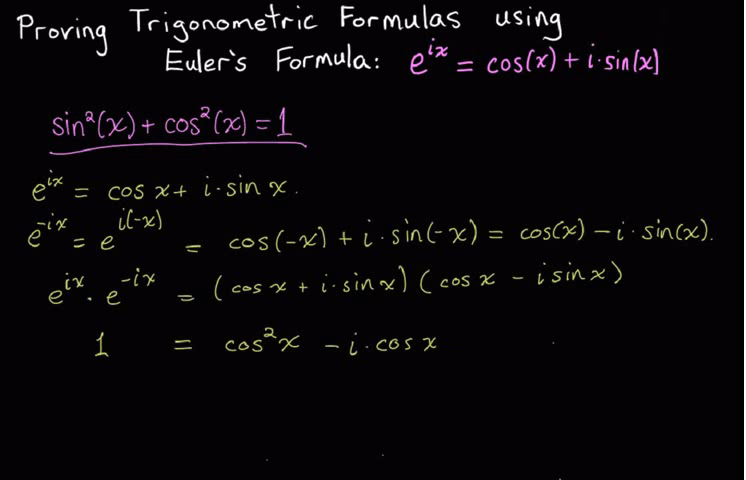 Proving Trigonometric Formulas using
Euler's Formula: e^{ix} = cos(x) + i·sin(x)
sin²(x) + cos²(x) = 1
e^{ix} = cos x + i·sin x.
e^{-ix} = e^{i(-x)} = cos(-x) + i·sin(-x) = cos(x) - i·sin(x).
e^{ix} · e^{-ix} = (cos x + i·sin x)(cos x - i sin x)
1 = cos²x - i·cos x